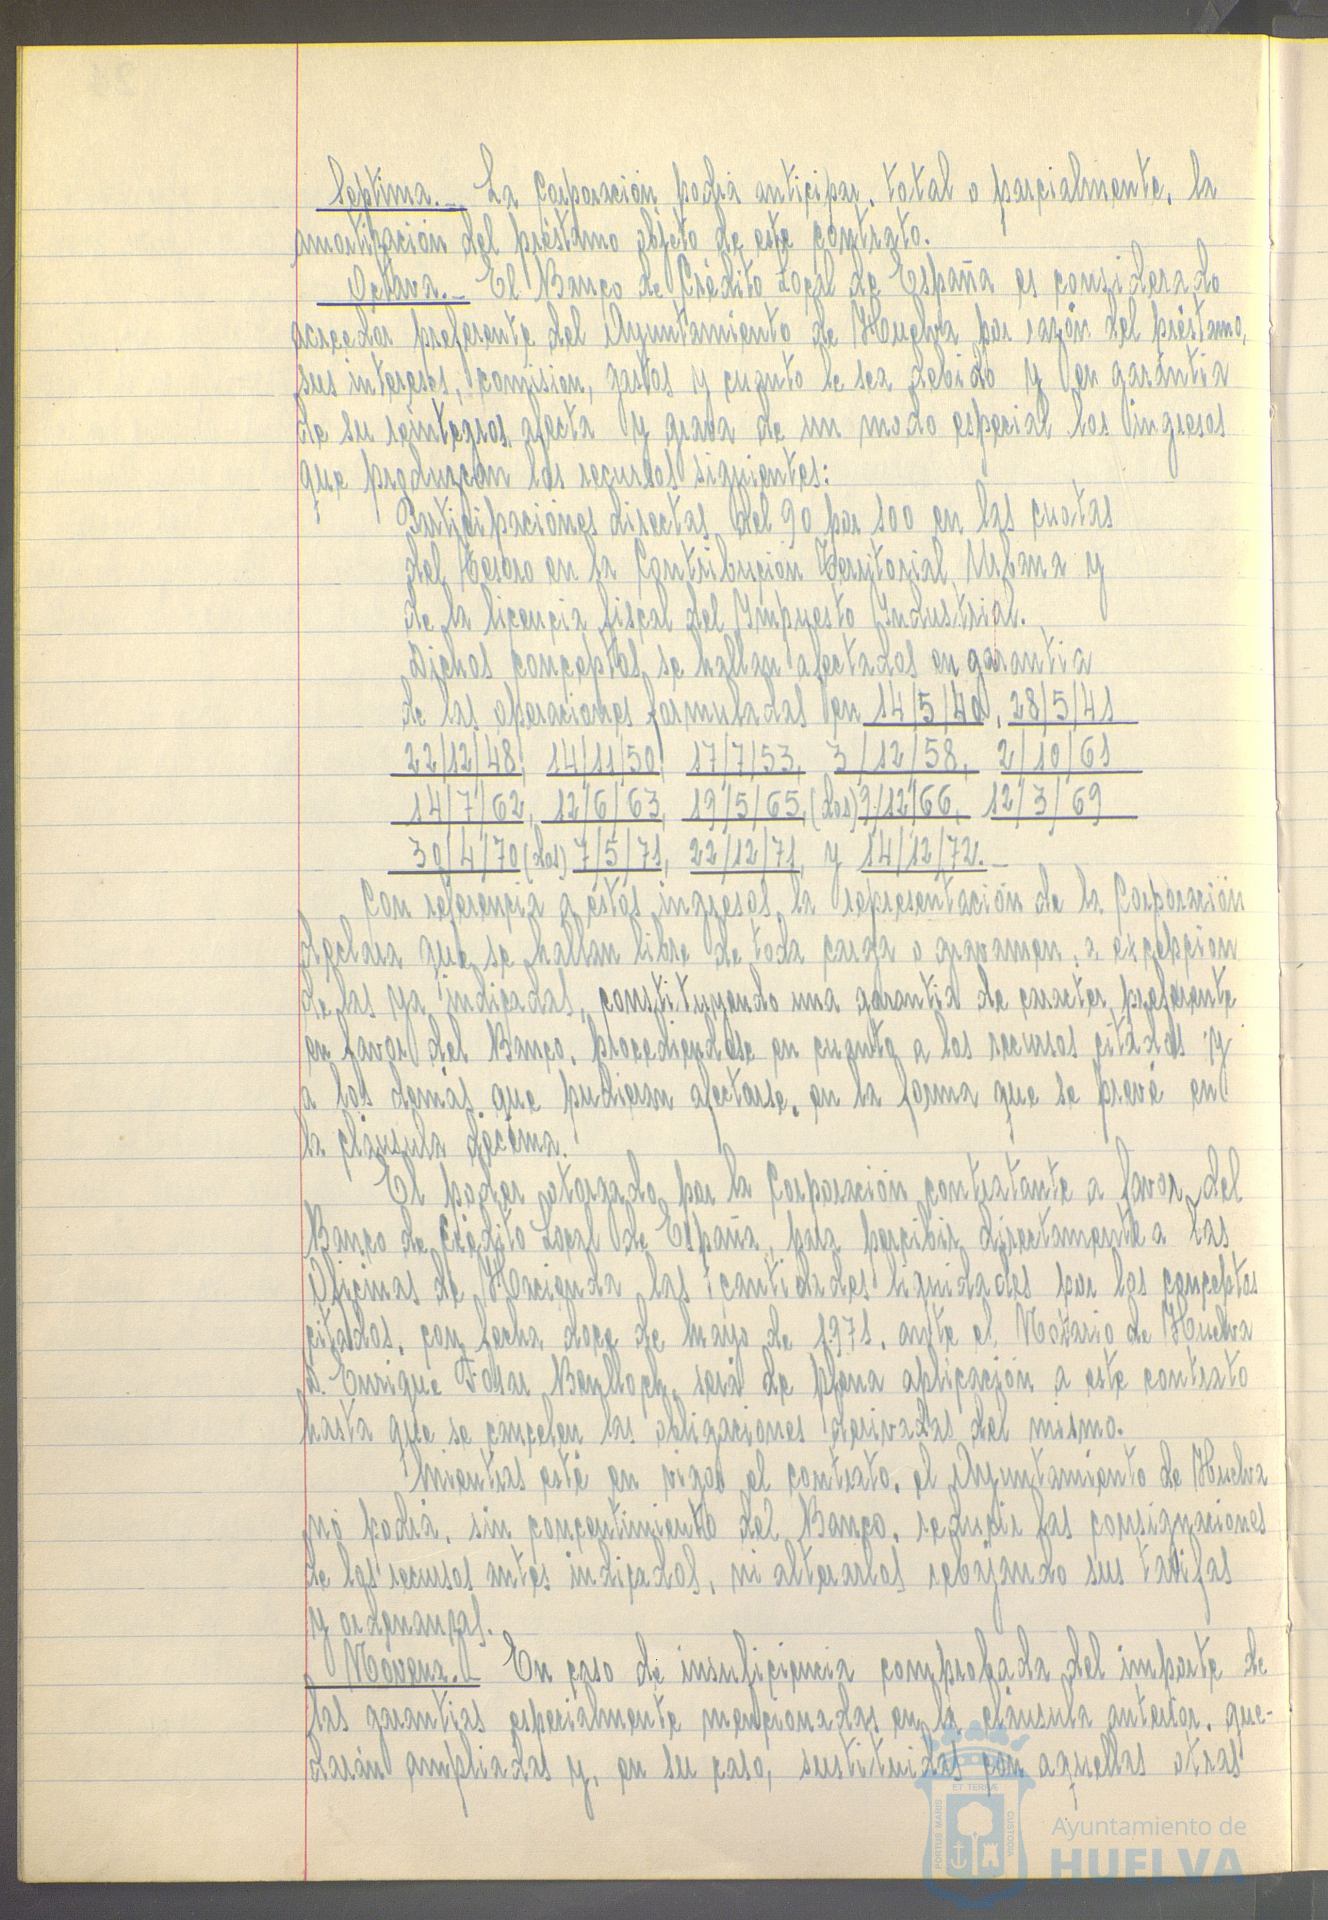 Septima._ La Corporación podrá anticipar, total o parcialmente, la
amortización del préstamo objeto de este contrato.
Octava._ El Banco de Crédito Local de España es considerado
acreedor preferente del Ayuntamiento de Huelva por razón del préstamo,
sus intereses, comision, gastos y cuanto le sea debido y en garantia
de su reintegros, afecta y grava de un modo especial los ingresos
que produzcan los recursos siguientes:
Participaciones directas del 90 por 100 en las cuotas
del Tesoro en la Contribución Territorial Urbana y
de la licencia fiscal del Impuesto Industrial.
Dichos conceptos se hallan afectados en garantia
de las operaciones formuladas en 14/5/40, 28/5/41
22/12/48, 14/11/50, 17/7/53, 3/12/58, 2/10/61
14/7/62, 12/6/63, 19/5/65, (dos) 9/12/66, 12/3/69
30/4/70 (dos) 7/5/71, 22/12/71, y 14/12/72._
Con referencia a estos ingresos, la representación de la Corporación
declara que se hallan libre de toda carga o gravamen, a excepcion
de las ya indicadas, constituyendo una garantia de caracter preferente
en favor del Banco, procediendose en cuanto a los recursos citados y
a los demás que pudieran afectarse, en la forma que se prevé en
la cláusula décima.
El poder otorgado por la Corporación contratante a favor del
Banco de Crédito Local de España, para percibir directamente a las
Oficinas de Hacienda las cantidades liquidades por los conceptos
citados, con fecha doce de mayo de 1971, ante el Notario de Huelva
D. Enrique Fosar Benlloch, será de plena aplicación a este contrato
hasta que se cancelen las obligaciones derivadas del mismo.
Mientras esté en vigor el contrato, el Ayuntamiento de Huelva
no podrá, sin concentimiento del Banco, reducir las consignaciones
de los recursos antes indicados, ni alterarlos rebajando sus tarifas
y ordenanzas.
Novena._ En caso de insuficiencia comprobada del importe de
las garantias especialmente mencionadas en la cláusula anterior, que-
darán ampliadas y, en su caso, sustituidas con aquellas otras
ET TERRÆ
PORTUS MARIS
CUSTODIA
Ayuntamiento de
HUELVA